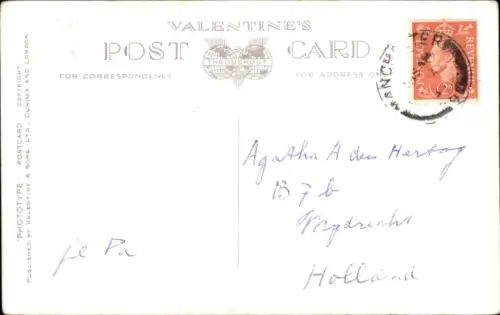 VALENTINE'S
POST CARD
THROUGHOUT
FOR CORRESPONDENCE
FOR ADDRESS
"PHOTOTYPE" POSTCARD COPYRIGHT
PUBLISHED BY VALENTINE & SONS, LTD., DUNDEE AND LONDON
POSTAGE
REVENUE
MANCH
Agatha A den Hertog
B 7 b
Mydrecht
Holland
je Pa